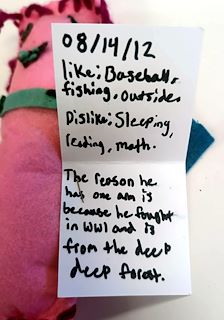 08/14/12
like: Baseball,
fishing, outside,
Dislike: Sleeping,
reading, math.
The reason he
has one arm is
because he fought
in WWI and is
from the deep
deep forest.